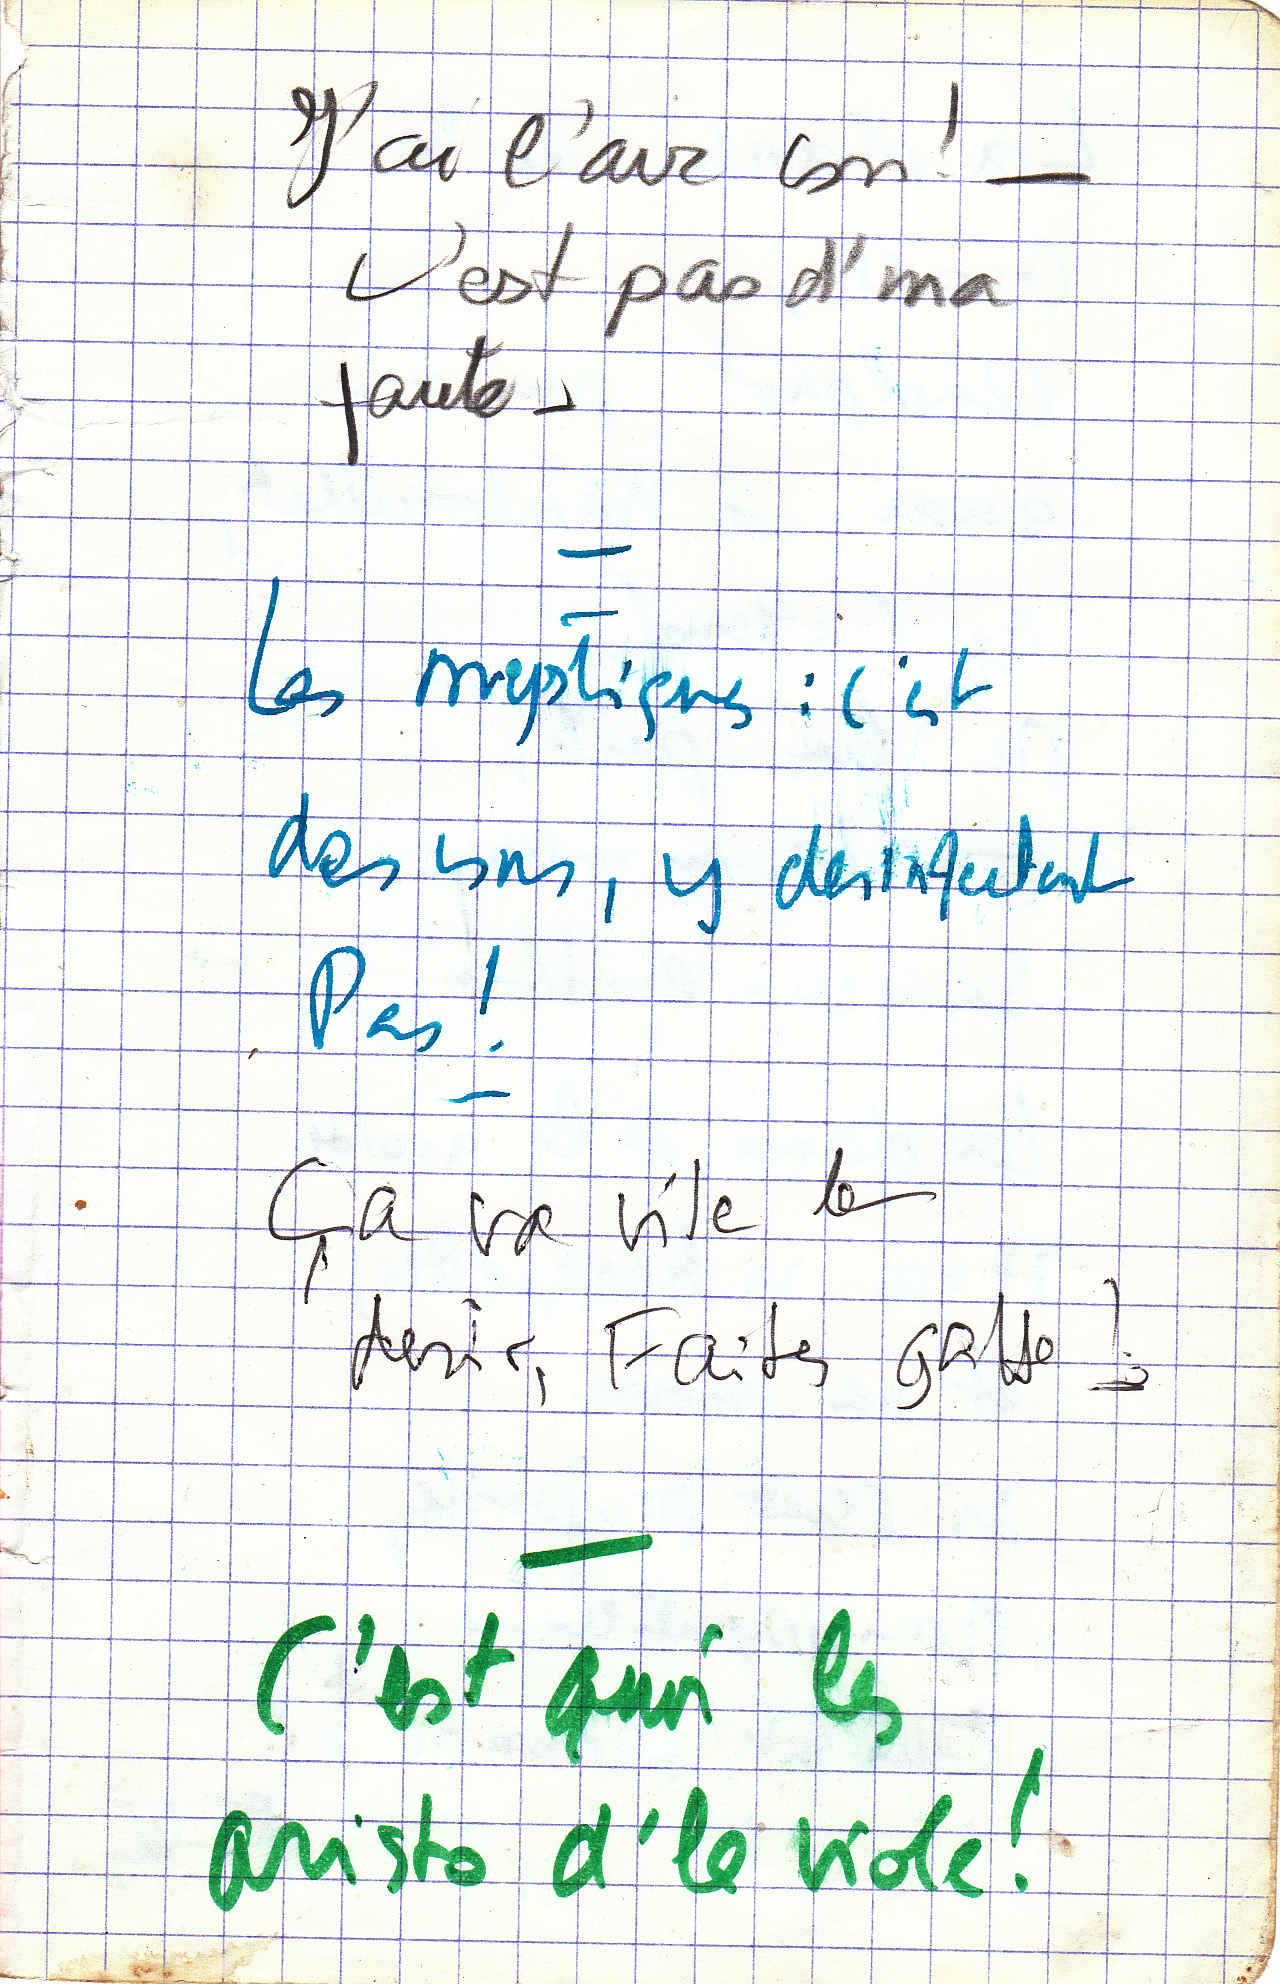 J'ai l'air con! —
C'est pas d'ma
faute -
—
—
Les : c'est
des cons, y désinfectent
Pas!
—
Ça va vite le
désir, Faites gaffe!
—
C'est qui les
aristo d'le viole!